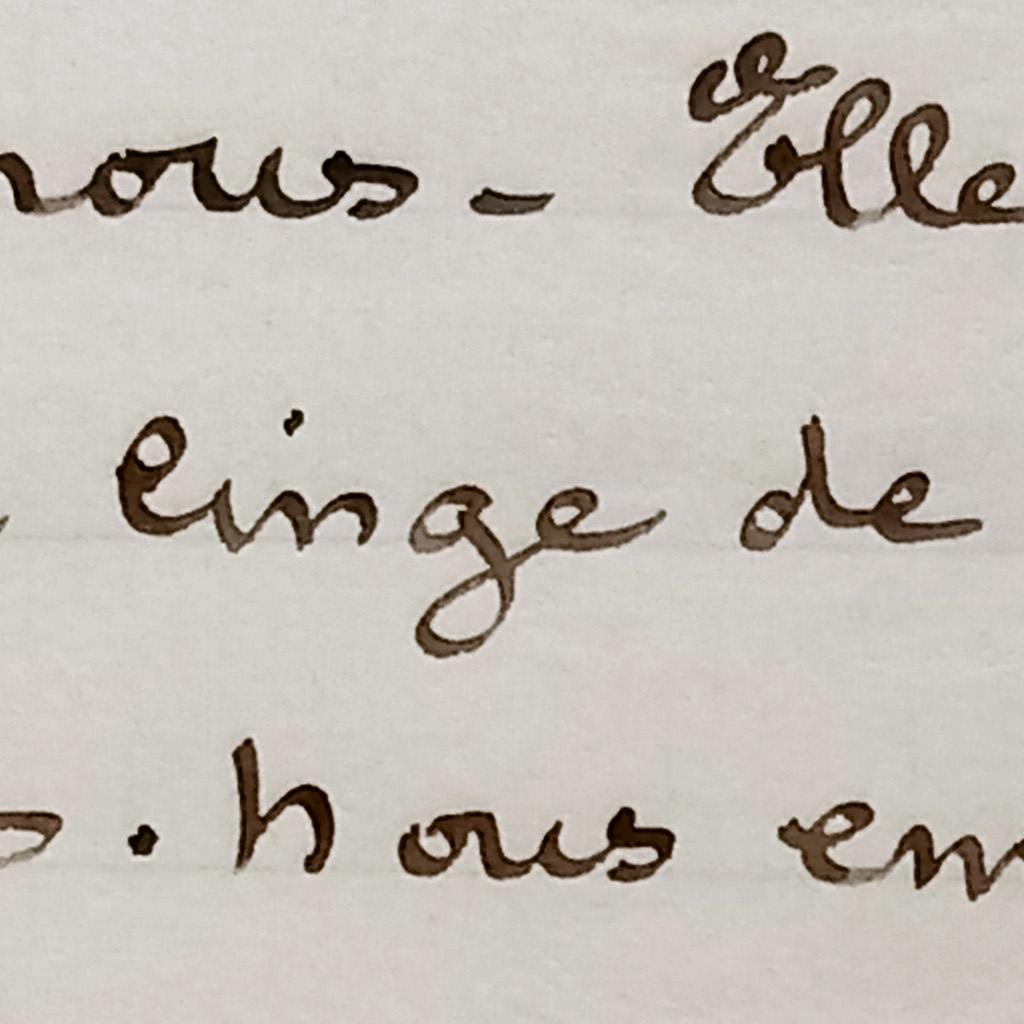 nous - Elle
linge de
. Nous em